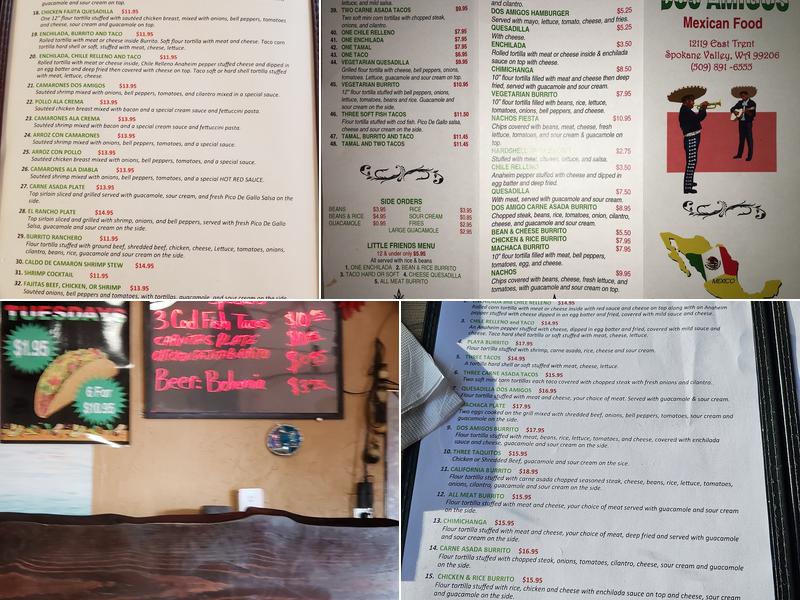 guacamole and sour cream on top.
18. CHICKEN FAJITA QUESADILLA $11.95
One 12" flour tortilla stuffed with sautéed chicken breast, mixed with onions, bell peppers, tomatoes
and cheese, sour cream and guacamole on top.
19. ENCHILADA, BURRITO AND TACO $11.95
Rolled tortilla with meat or cheese inside Burrito. Soft flour tortilla with meat and cheese. Taco corn
tortilla hard shell or soft, stuffed meat, cheese, lettuce.
20. ENCHILADA, CHILE RELLENO AND TACO $11.95
Rolled tortilla with meat or cheese inside, Chile Relleno Anaheim pepper stuffed cheese and dipped in
an egg batter and deep fried then covered with cheese on top. Taco soft or hard shell tortilla stuffed
with meat, cheese, lettuce.
21. CAMARONES DOS AMIGOS $13.95
Sautéed shrimp mixed with onions, bell peppers, tomatoes, and cilantro mixed in a special sauce.
22. POLLO ALA CREMA $13.95
Sautéed chicken breast mixed with bacon and a special cream sauce and fettuccini pasta.
23. CAMARONES ALA CREMA $13.95
Sautéed shrimp mixed with bacon and a special cream sauce and fettuccini pasta.
24. ARROZ CON CAMARONES $13.95
Sautéed shrimp mixed with onions, bell peppers, tomatoes, and a special sauce.
25. ARROZ CON POLLO $13.95
Sautéed chicken breast mixed with onions, bell peppers, tomatoes, and a special sauce.
26. CAMARONES ALA DIABLA $13.95
Sautéed shrimp mixed with onions, bell peppers, tomatoes, and a special HOT RED SAUCE.
27. CARNE ASADA PLATE $13.95
Top sirloin sliced and grilled served with guacamole, sour cream, and fresh Pico De Gallo Salsa on the
side.
28. EL RANCHO PLATE $14.95
Top sirloin sliced and grilled with shrimp, onions, and bell peppers, served with fresh Pico De Gallo
Salsa, guacamole and sour cream on the side.
29. BURRITO RANCHERO $11.95
Flour tortilla stuffed with ground beef, shredded beef, chicken, cheese, Lettuce, tomatoes, onions,
cilantro, beans, rice, guacamole and sour cream on the side.
30. CALDO DE CAMARON SHRIMP STEW $14.95
31. SHRIMP COCKTAIL $11.95
32. FAJITAS BEEF, CHICKEN, OR SHRIMP $13.95
Sautéed onions, bell peppers and tomatoes, with tortillas, guacamole, and sour cream on the side
lettuce, and red salsa.
39. TWO CARNE ASADA TACOS $9.95
Two soft mini corn tortillas with chopped steak,
onions, and cilantro.
40. ONE CHILE RELENO $7.95
41. ONE ENCHILADA $7.95
42. ONE TAMAL $7.95
43. ONE TACO $6.95
44. VEGETARIAN QUESADILLA $9.95
Grilled flour tortilla with cheese, bell peppers, onions,
tomatoes. Lettuce, guacamole and sour cream on top.
45. VEGETARIAN BURRITO $10.95
12" flour tortilla stuffed with bell peppers, onions,
lettuce, tomatoes, beans and rice. Guacamole and
sour cream on the side.
46. THREE SOFT FISH TACOS $11.50
Flour tortilla stuffed with cod fish. Pico De Gallo salsa,
cheese and sour cream on the side.
47. TAMAL, BURRITO AND TACO $11.45
48. TAMAL AND TWO TACOS $11.45
SIDE ORDERS
BEANS $3.95 RICE $3.95
BEANS & RICE $4.95 SOUR CREAM $0.85
GUACAMOLE $0.95 FRIES $2.95
LARGE GUACAMOLE $2.95
LITTLE FRIENDS MENU
12 & under only $5.95
All served with rice & beans
1. ONE ENCHILADA 2. BEAN & RICE BURRITO
3. TACO HARD OR SOFT 4. CHEESE QUESADILLA
5. ALL MEAT BURRITO
and cilantro.
DOS AMIGOS HAMBURGER $5.25
Served with mayo, lettuce, tomato, cheese, and fries.
QUESADILLA $5.25
With cheese.
ENCHILADA $3.50
Rolled tortilla with meat or cheese inside & enchilada
sauce on top with cheese.
CHIMICHANGA $8.50
10" flour tortilla filled with meat and cheese then deep
fried, served with guacamole and sour cream.
VEGETARIAN BURRITO $7.95
10" flour tortilla filled with beans, rice, lettuce,
tomatoes, onions, and bell peppers.
NACHOS FIESTA $10.95
Chips covered with beans, meat, cheese, fresh
lettuce, tomatoes, and sour cream & guacamole on
top.
HARDSHELL $2.75
Stuffed with meat, cheese, lettuce, and salsa.
CHILE RELLENO $3.50
Anaheim pepper stuffed with cheese and dipped in
egg batter and deep fried.
QUESADILLA $7.50
With meat, served with guacamole and sour cream.
DOS AMIGO CARNE ASADA BURRITO $8.95
Chopped steak, beans, rice, tomatoes, onion, cilantro,
cheese, and guacamole and sour cream.
BEAN & CHEESE BURRITO $5.50
CHICKEN & RICE BURRITO $7.95
MACHACA BURRITO $7.95
10" flour tortilla filled with meat, bell peppers,
tomatoes, egg, and cheese.
NACHOS $9.95
Chips covered with beans, cheese, fresh lettuce, and
tomatoes, with guacamole and sour cream on top.
DOS AMIGOS
Mexican Food
12119 East Trent
Spokane Valley, WA 99206
(509) 891-6555
MEXICO
TUESDAYS
$1.95
6 For
$10.95
3 Cod Fish Tacos
CARNITAS PLATE
Beer: Bohemia
ENCHILADA and CHILE RELLENO $14.95
Rolled corn tortilla with meat or cheese inside with red sauce and cheese on top along with an Anaheim
pepper stuffed cheese dipped in an egg batter and fried, covered with mild sauce and cheese.
3. CHILE RELLENO and TACO $14.95
An Anaheim pepper stuffed with cheese, dipped in egg batter and fried, covered with mild sauce and
cheese. Taco hard tortilla shell or soft stuffed with meat, cheese, lettuce.
PLAYA BURRITO $17.95
Flour tortilla stuffed with shrimp, carne asada, rice, cheese and sour cream.
5. THREE TACOS $14.95
A tortilla hard shell or soft stuffed with meat, cheese, lettuce.
6. THREE CARNE ASADA TACOS $15.95
Two soft mini corn tortillas each taco covered with chopped steak with fresh onions and cilantro.
QUESADILLA DOS AMIGOS $16.95
Flour tortilla stuffed with cheese, your choice of meat. Served with guacamole & sour cream.
MACHACA PLATE $17.95
Two eggs cooked on the grill mixed with shredded beef, onions, bell peppers, tomatoes, sour cream and
guacamole on the side.
9. DOS AMIGOS BURRITO $17.95
Flour tortilla stuffed with meat, beans, rice, lettuce, tomatoes, and cheese, covered with enchilada
sauce and cheese, guacamole and sour cream on the side.
10. THREE TAQUITOS $15.95
Chicken or Shredded Beef, guacamole, and sour cream on the sice.
11. CALIFORNIA BURRITO $18.95
Flour tortilla stuffed with carne asada chopped seasoned steak, cheese, beans, rice, lettuce, tomatoes,
onions, cilantro, guacamole and sour cream on the side.
12. ALL MEAT BURRITO $15.95
Flour tortilla stuffed with meat and cheese, your choice of meat served with guacamole and sour cream
on the side.
13. CHIMICHANGA $15.95
Flour tortilla stuffed with meat and cheese, your choice of meat, deep fried and served with guacamole
and sour cream on the side.
14. CARNE ASADA BURRITO $16.95
Flour tortilla stuffed with chopped steak, onions, tomatoes, cilantro, cheese, sour cream and guacamole
on the side.
15. CHICKEN & RICE BURRITO $15.95
Flour tortilla stuffed with chicken, rice and cheese with enchilada sauce on top and cheese, sour cream
and guacamole on the side.